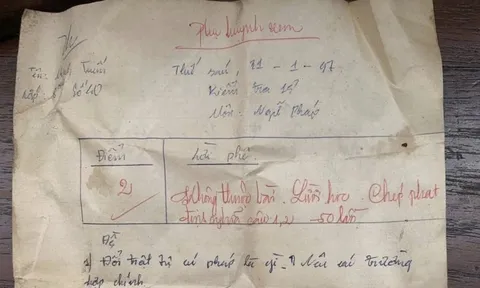 Phụ huynh xem
Tên: Anh Tuấn
Thứ sáu, 31 - 1 - 97
Lớp: số 40
Kiểm tra 15'
Môn: Ngữ Pháp
Điểm
Lời phê:
2
Không thuộc bài. Lười học. Chép phạt
định nghĩa câu 1,2 - 50 lần
Đề
1) Đổi trật tự cú pháp là gì? Nêu các trường
hợp chính